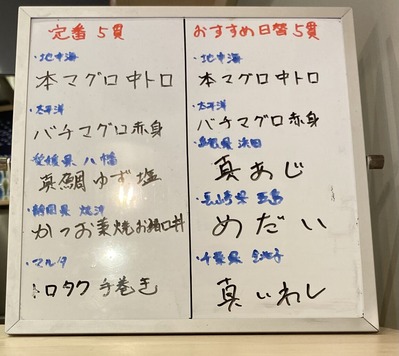 定番 5貫
・地中海
本マグロ中トロ
・太平洋
バチマグロ赤身
愛媛県 八幡
真鯛ゆず塩
・静岡県 焼津
かつお藁焼お錦口丼
・マルタ
トロタク手巻き
おすすめ日替5貫
・地中海
本マグロ中トロ
・太平洋
バチマグロ赤身
・島根県 浜田
真あじ
・長崎県 五島
めだい
・千葉県 銚子
真いわし